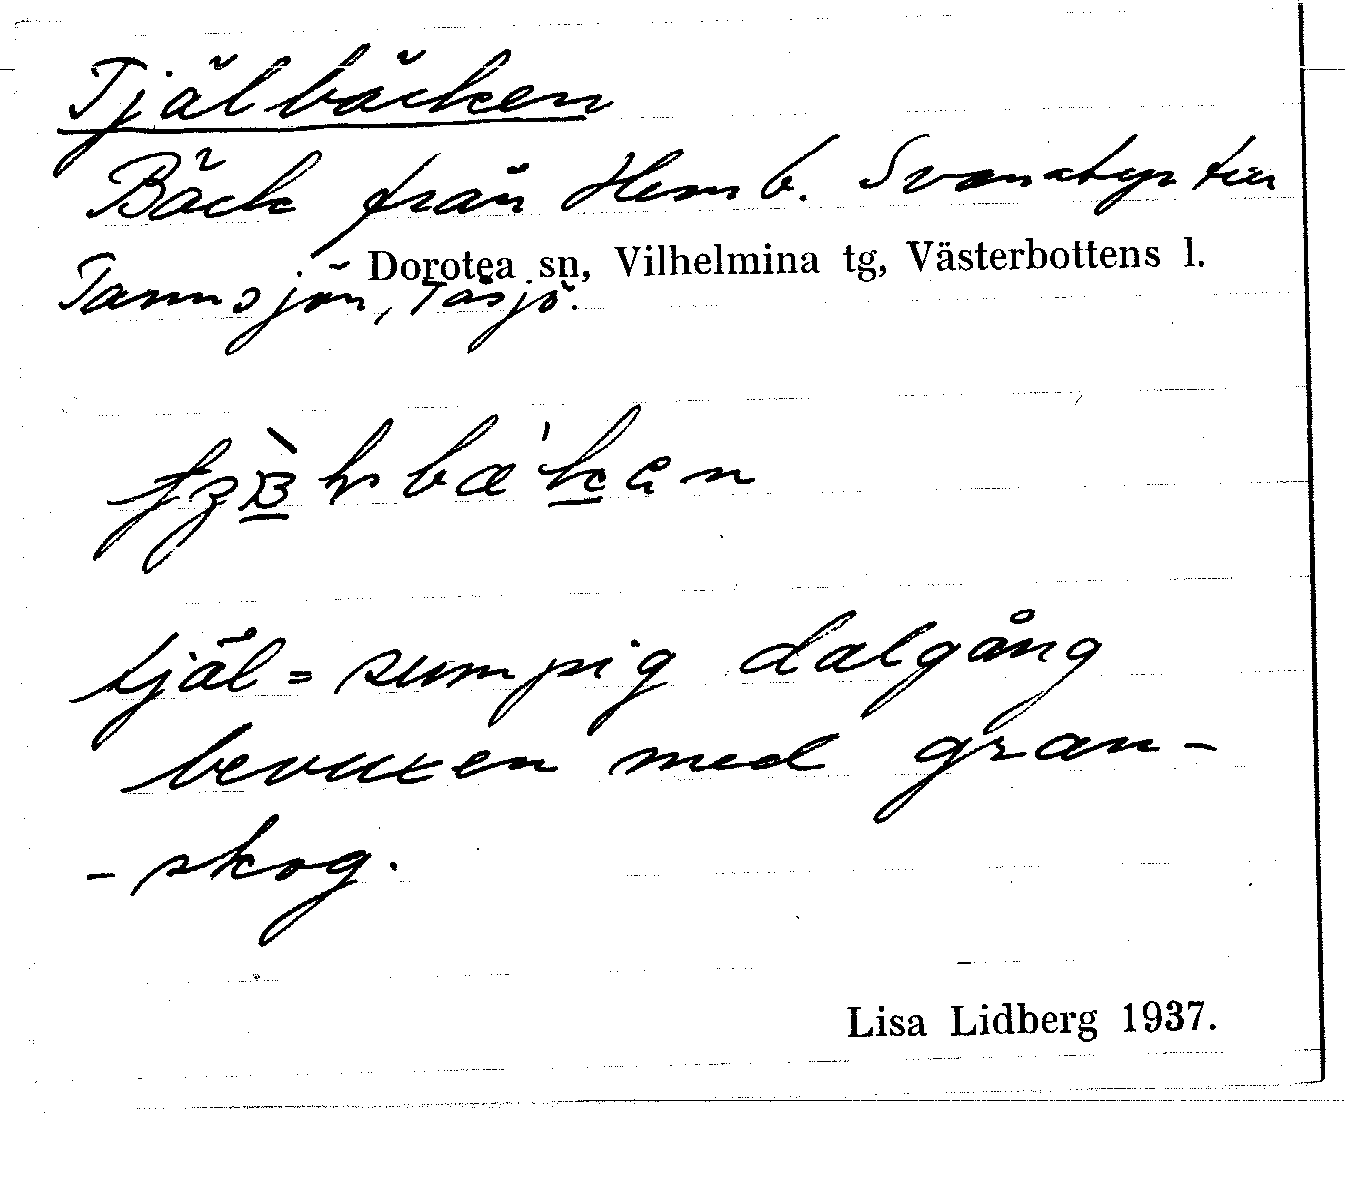 Tjälbäcken
Bäck från Hemb. Svanatyr till
Dorotea sn, Vilhelmina tg, Västerbottens l.
Tannsjön, Tåsjö.
tjäl = sumpig dalgång
bevuxen med gran-
-skog.
Lisa Lidberg 1937.